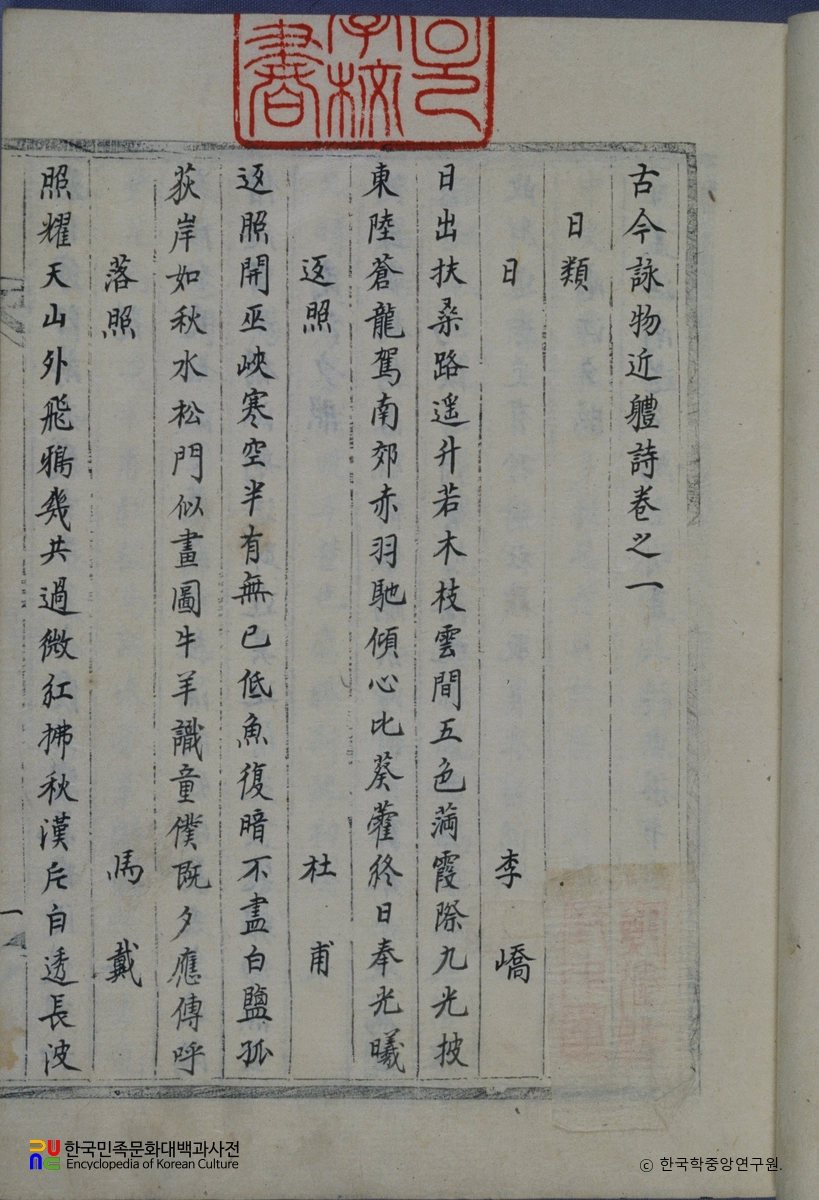 古今詠物近軆詩卷之一
日類
日 李嶠
日出扶桑路遥升若木枝雲間五色滿霞際九光披
東陸蒼龍駕南郊赤羽馳傾心比葵藿終日奉光曦
返照 杜甫
返照開巫峽寒空半有無已低魚復暗不盡白鹽孤
荻岸如秋水松門似畫圖牛羊識童僕既夕應傳呼
落照 馬戴
照耀天山外飛鴉幾共過微紅拂秋漢片白透長波
一
한국민족문화대백과사전
Encyclopedia of Korean Culture
© 한국학중앙연구원.